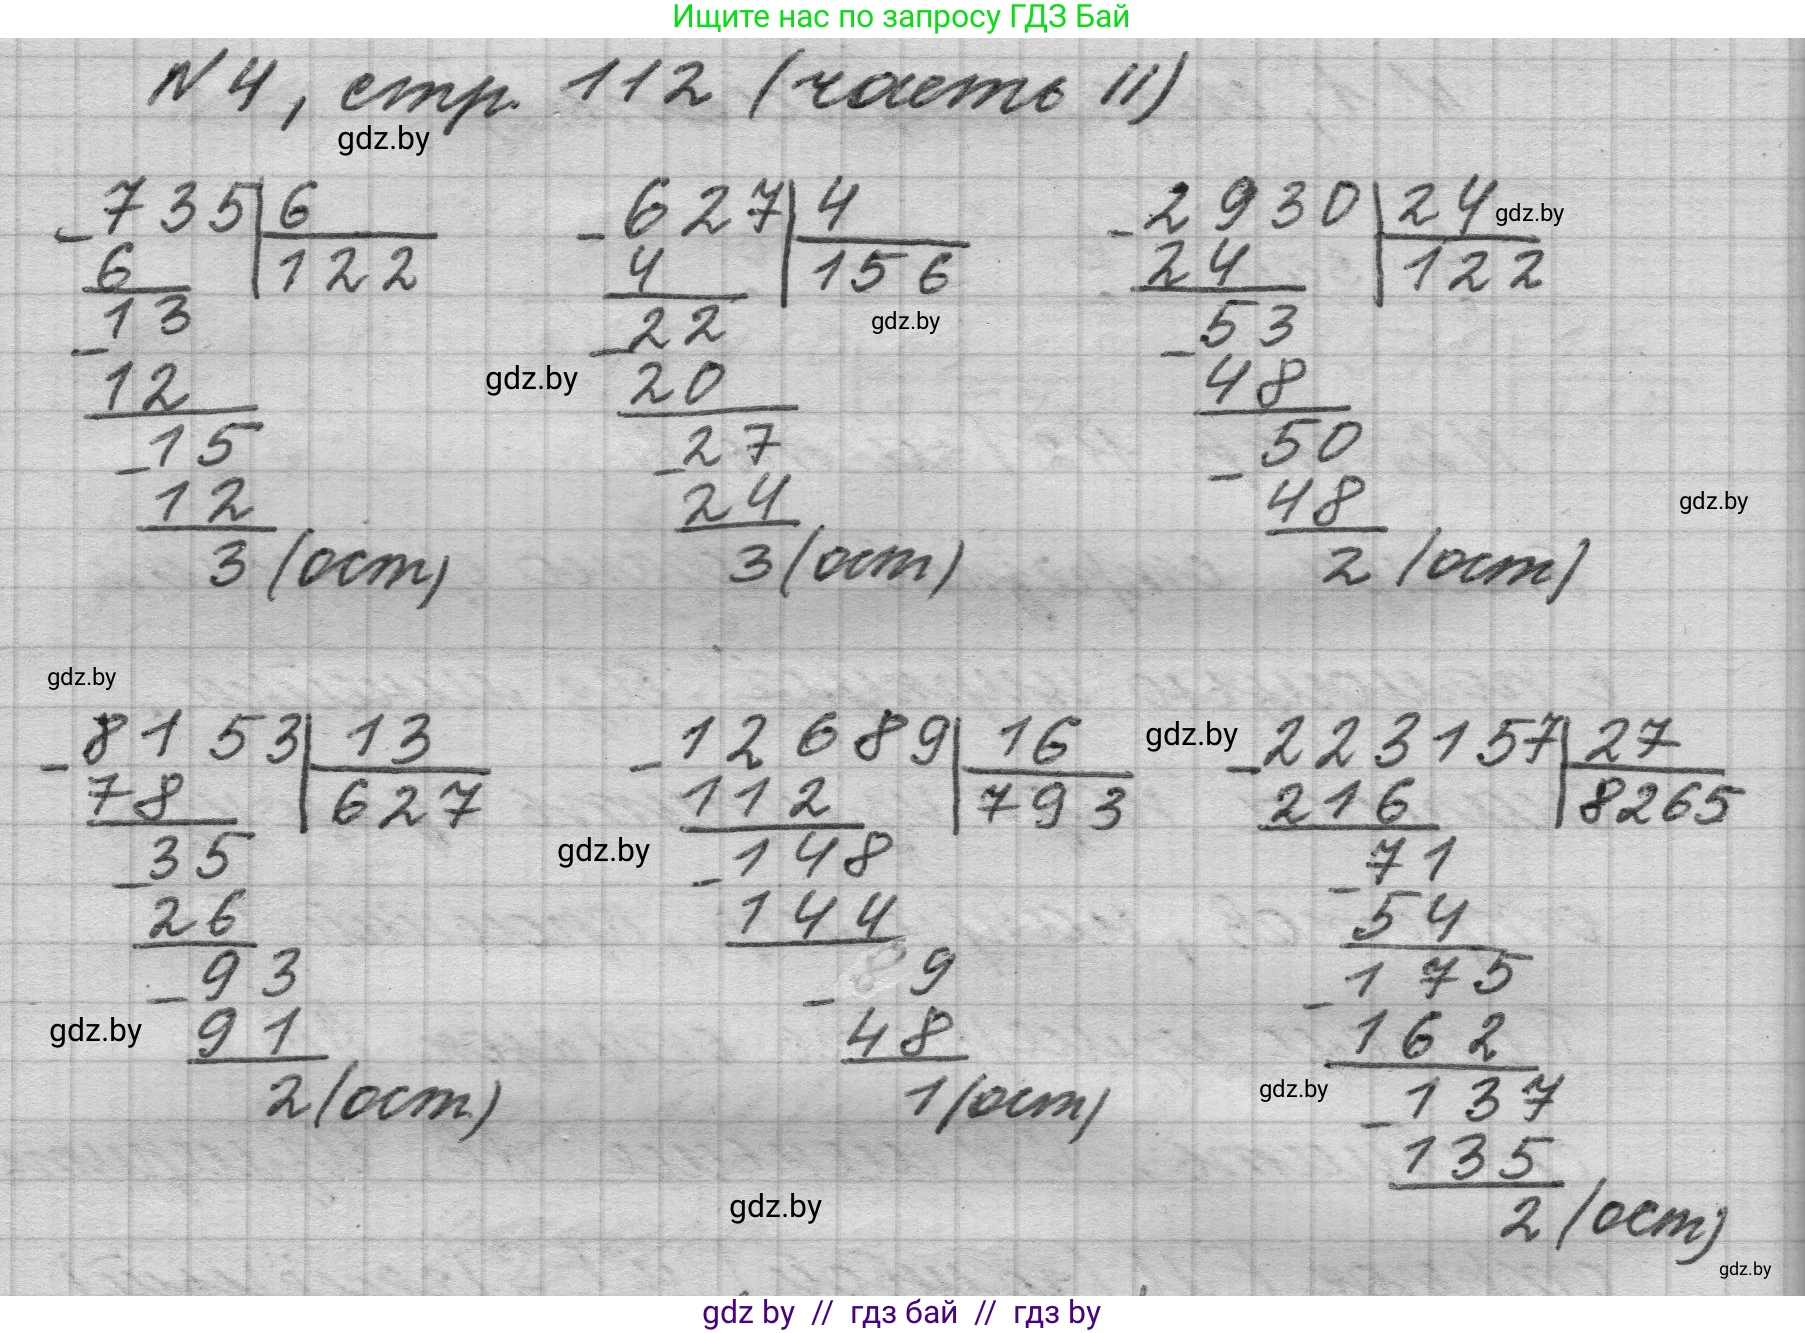 Ищите нас по запросу ГДЗ Бай
N 4, стр. 112 (часть II)
gdz.by
- 735 | 6
6 | 122
- 13
12
- 15
12
3 (ост)
- 627 | 4
4 | 156
gdz.by
- 22
gdz.by
20
- 27
24
3 (ост)
- 2930 | 24
gdz.by
24 | 122
- 53
48
- 50
48
gdz.by
2 (ост)
gdz.by
- 8153 | 13
78 | 627
- 35
26
- 93
gdz.by
91
2 (ост)
- 12689 | 16
112 | 793
gdz.by
- 148
144
- 89
48
1 (ост)
gdz.by
gdz.by
- 223157 | 27
216 | 8265
- 71
54
- 175
162
gdz.by
- 137
135
2 (ост)
gdz.by
gdz by // гдз бай // гдз by